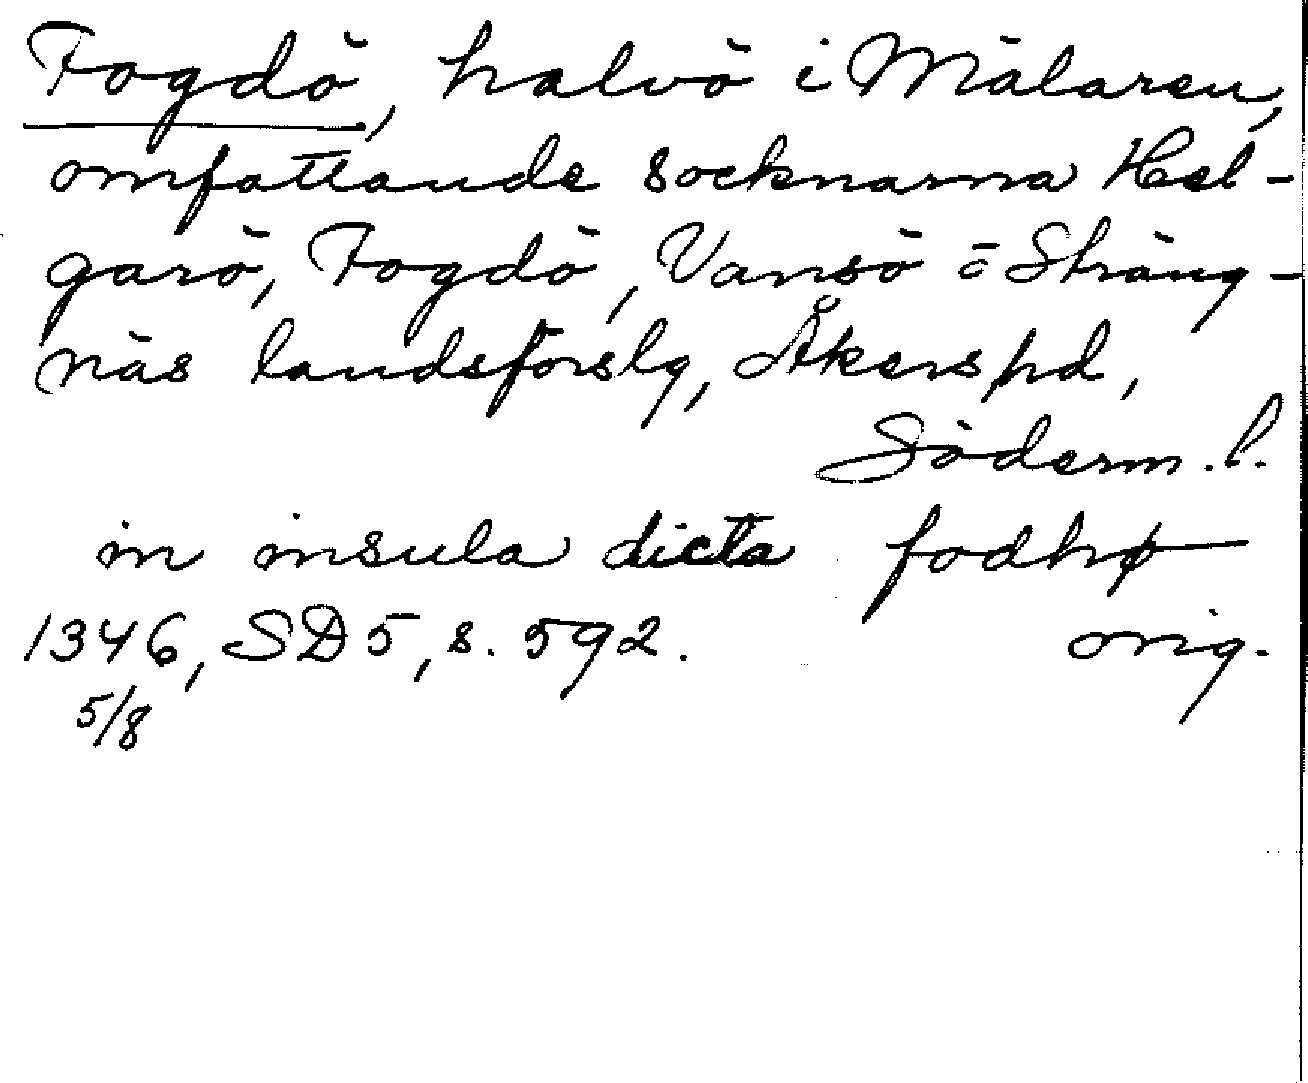 Fogdö, halvö i Mälaren,
omfattande socknarna Hel-
garö, Fogdö, Vansö o Sträng-
näs landsförslg, Åkers hd,
Söderm. l.
in insula dicta fodhø
1346, SD 5, s. 592. orig.
5/8